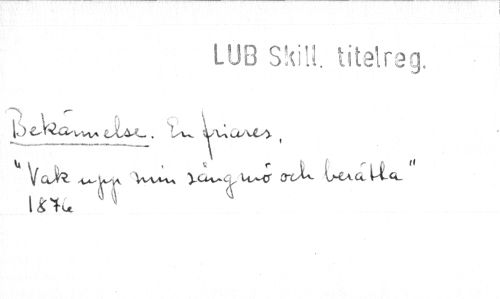 LUB Skill. titelreg.
Bekännelse. En friares,
"Vak upp min sångmö och berätta"
1876